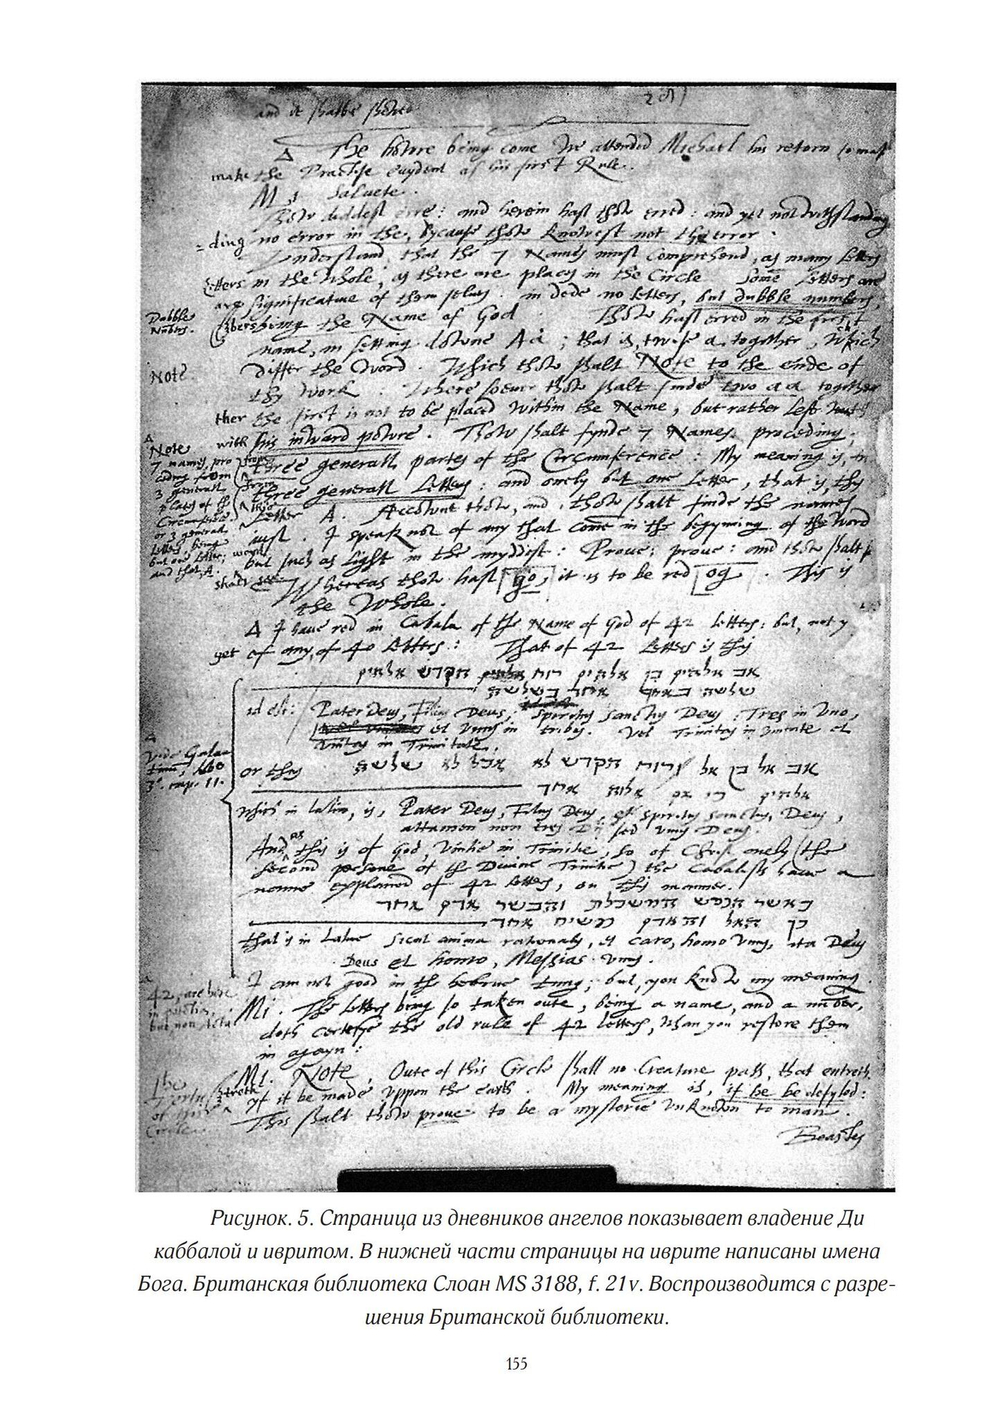 and it shalbe
The howre being come we attended Michael his return to mak
make the Practise euydent of his first Rule.
M. Saluete.
Thow diddest erre: and herein hast thow erred: and yet notwithstanding
=ding no error in the, bycause thow knowest not the error.
Vnderstand, that the 7 Names must Comprehend, as many letters
letters in the whole, as there are places in the Circle Some letters are
are significatiue of them selues. in dede no letters, but dubble numbers,
Dubble
Numbs.
the Name of God Thow hast erred in the first
name, in setting downe Aa; that is, twise a together, which
Note
differ the word. Which thow shalt Note to the ende of
thy work. Where soeuer thow shalt finde two aa together
ther the first is not to be placed within the Name, but rather left with
with his inward powre. Thow shalt fynde 7 Names proceding
three generall partes of the Circumference: My meaning is,
three generall Letters: and onely but one Letter, that is, this
Letter A. Accownt thow, and thow shalt finde the names
iust. I speak not of any that come in the begynning of the word
but such as light in the myddest: Proue; proue: and thow shalt
Whereas thow hast go, it is to be red og. This is
the Whole.
Note
7 names, pro
3 generall
places of the
Circumference
or 3 generall
letters being
but one letter,
and that, A.
Δ I haue red in Cabala of the Name of God of 42 letters: but, not y
yet of any, of 40 letters: That of 42 letters is this
אב אלהים בן אלהים רוח הקדש אלהים
שלשה באחד אחד בשלשה
id est: Pater Deus, Filius Deus, Spiritus sanctus Deus: Tres in Vno,
et Vnus in tribus. Vel Trinitas in Vnitate et
Vnitas in Trinitate.
or this אב אל בן אל ורוח הקדש לא אבל לא שלשה
אלהים כי אם אלוה אחד
3°. cap. 11.
which in latin, is, Pater Deus, Filius Deus, et Spiritus sanctus, Deus,
attamen non tres Dij sed Vnus Deus.
And as this is of God, Vnitie in Trinitie, so of Christ onely (the
second persone of the Diuine Trinitie) the Cabalists haue a
name explaned of 42 letters, on this maner.
כאשר הנפש המשכלת והבשר אדם אחד
כן האל והאדם משיח אחד
that is in latine Sicut anima rationalis, et caro, homo Vnus, ita Deus
Deus et homo, Messias Vnus.
I am not good in the hebrue tung; but, you know my meaning.
42, are here
but non
Mi. The letters being so taken oute, being a name, and a number,
doth certefye the old rule of 42 letters, whan you restore them
in agayn:
Mi. Note, Oute of this Circle shall no Creature pass, that entreth
yf it be made vppon the earth. My meaning is, if he be defyled:
This shalt thow proue to be a mysterie vnknown to man.
Beasts
Рисунок. 5. Страница из дневников ангелов показывает владение Ди
каббалой и ивритом. В нижней части страницы на иврите написаны имена
Бога. Британская библиотека Слоан MS 3188, f. 21v. Воспроизводится с разре-
шения Британской библиотеки.
155